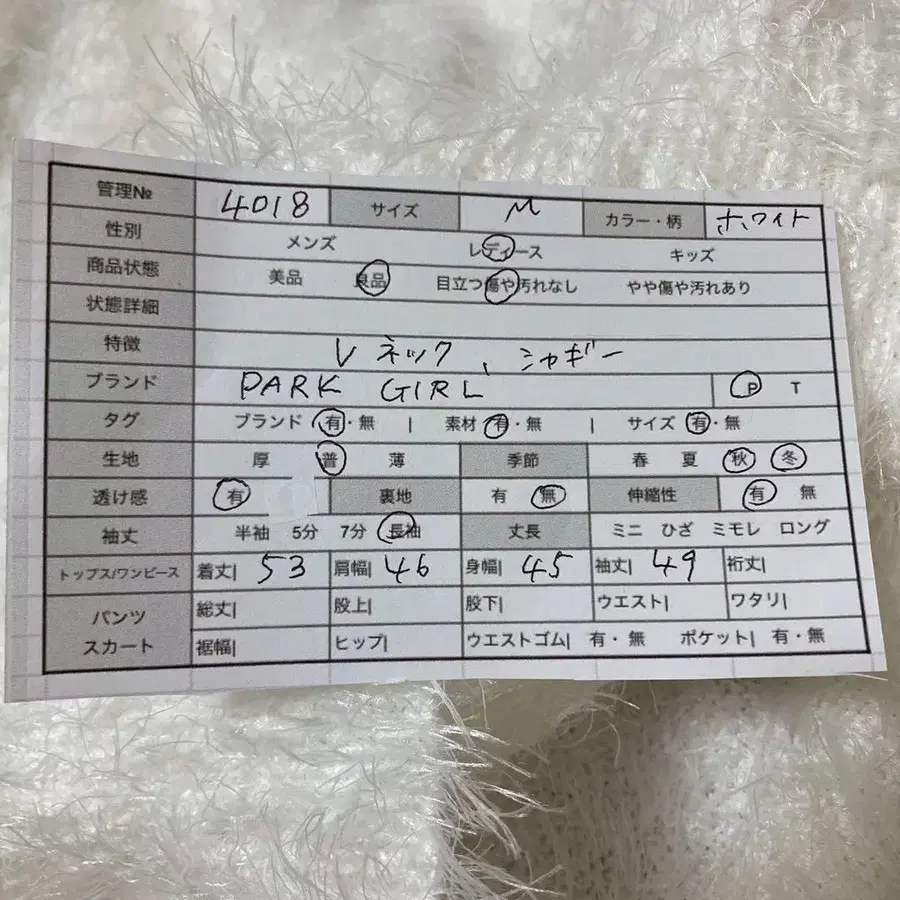 管理№ 4018 サイズ M カラー・柄 ホワイト
性別 メンズ レディース キッズ
商品状態 美品 良品 目立つ傷や汚れなし やや傷や汚れあり
状態詳細
特徴 Vネック、シャギー
ブランド PARK GIRL P T
タグ ブランド 有・無 | 素材 有・無 | サイズ 有・無
生地 厚 普 薄 季節 春 夏 秋 冬
透け感 有 裏地 有 無 伸縮性 有 無
袖丈 半袖 5分 7分 長袖 丈長 ミニ ひざ ミモレ ロング
トップス/ワンピース 着丈| 53 肩幅| 46 身幅| 45 袖丈| 49 裄丈|
パンツ スカート 総丈| 股上| 股下| ウエスト| ワタリ|
裾幅| ヒップ| ウエストゴム| 有・無 ポケット| 有・無